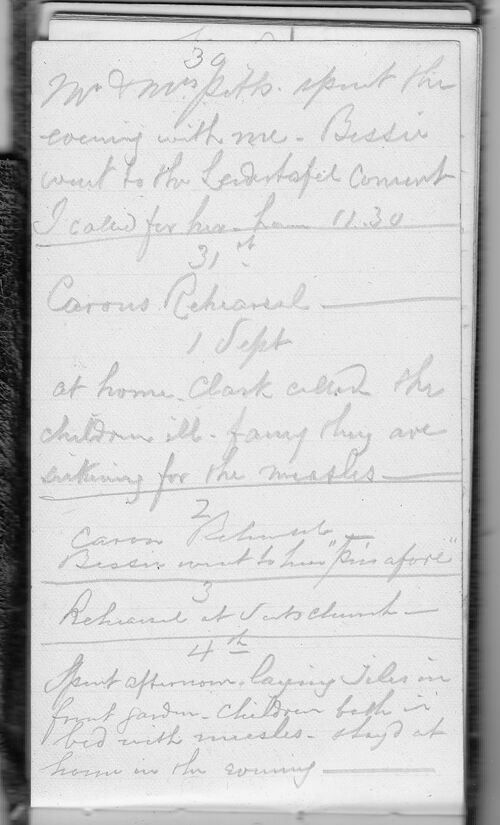 30
Mr & Mrs Pitts. spent the
evening with me - Bessie
went to the Leidertafel Concert
I called for her - home 11.30
31st
Carons Rehearsal
1 Sept
at home. Clark called the
children ill - fancy they are
sickening for the measles
2
Caron Rehearsal
Bessie went to hear "Pinafore"
3
Rehearsal at
4th
Spent afternoon laying Tiles in
front garden - Children both in
bed with measles - stay'd at
home in the evening